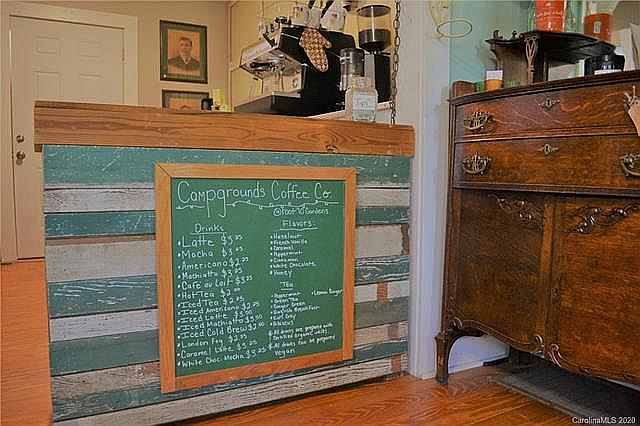 Campgrounds Coffee Co.
Drinks
• Latte $3.25
• Mocha $3.25
• Americano $2.25
• Machiatto $3.25
• Cafe au Lait $3.25
• Hot Tea $2.00
• Iced Tea $2.25
• Iced Americano $2.75
• Iced Latte $3.50
• Iced Machiatto $3.50
• Iced Cold Brew $2.60
• London Fog $2.75
• Caramel Latte $3.25
• White Choc. Mocha $3.25
Flavors:
• Hazelnut
• French Vanilla
• Caramel
• Peppermint
• Cinnamon
• White Chocolate
• Honey
Tea
• Peppermint
• Lemon Ginger
• Green Tea
• Ginger Green
• English Breakfast
• Earl Grey
• Hibiscus
All drinks are prepared with
organic milk.
All drinks can be prepared
vegan
CarolinaMLS 2020